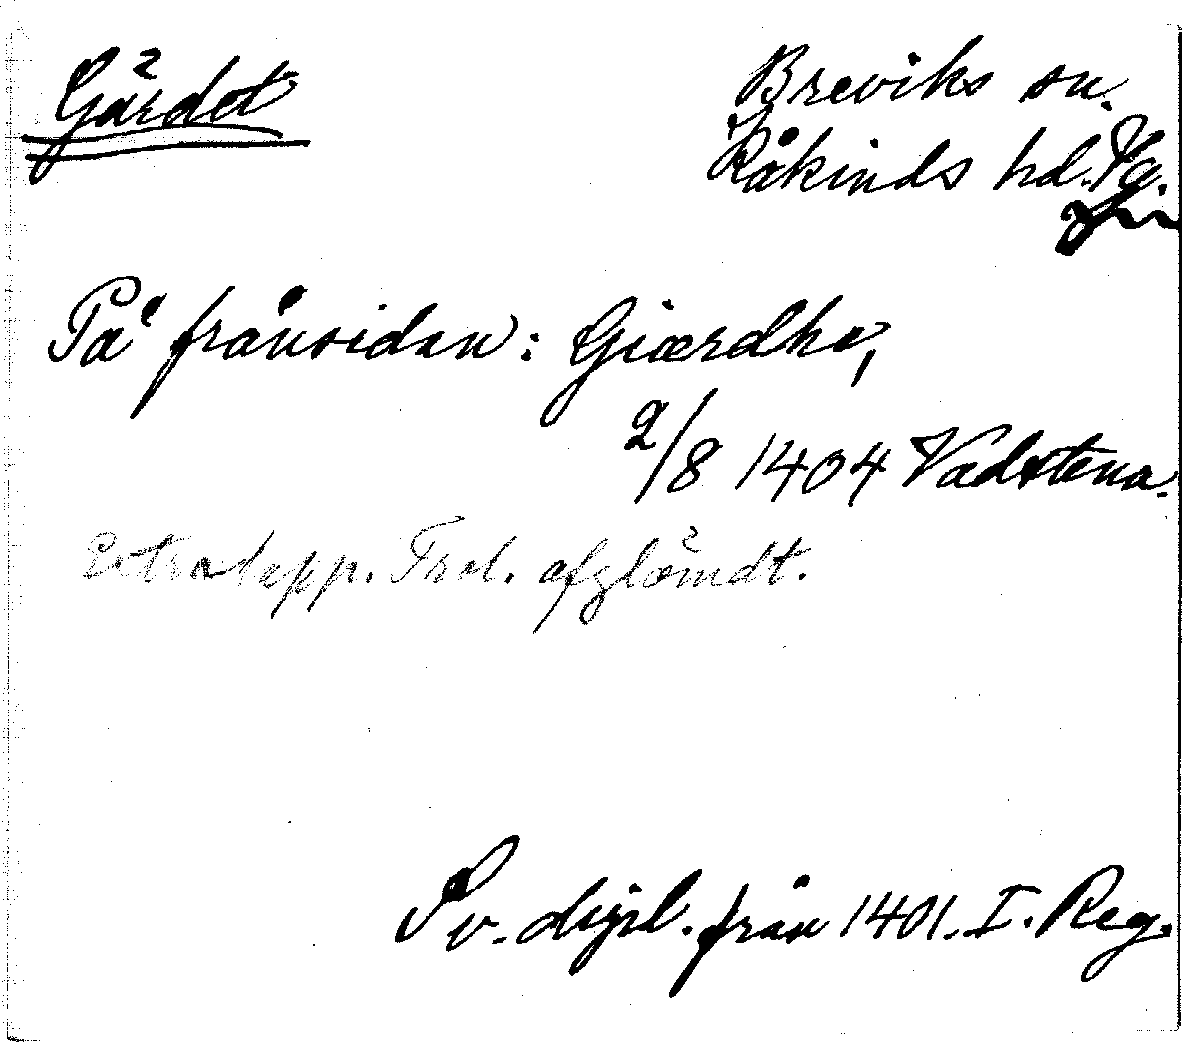 Gärdet
Breviks sn.
Kåkinds hd. Vg.
På frånsidan: Giærdhe,
2/8 1404 Vadstena.
Extrakapp. Trol. afglömdt.
Sv. dipl. från 1401. I. Reg.